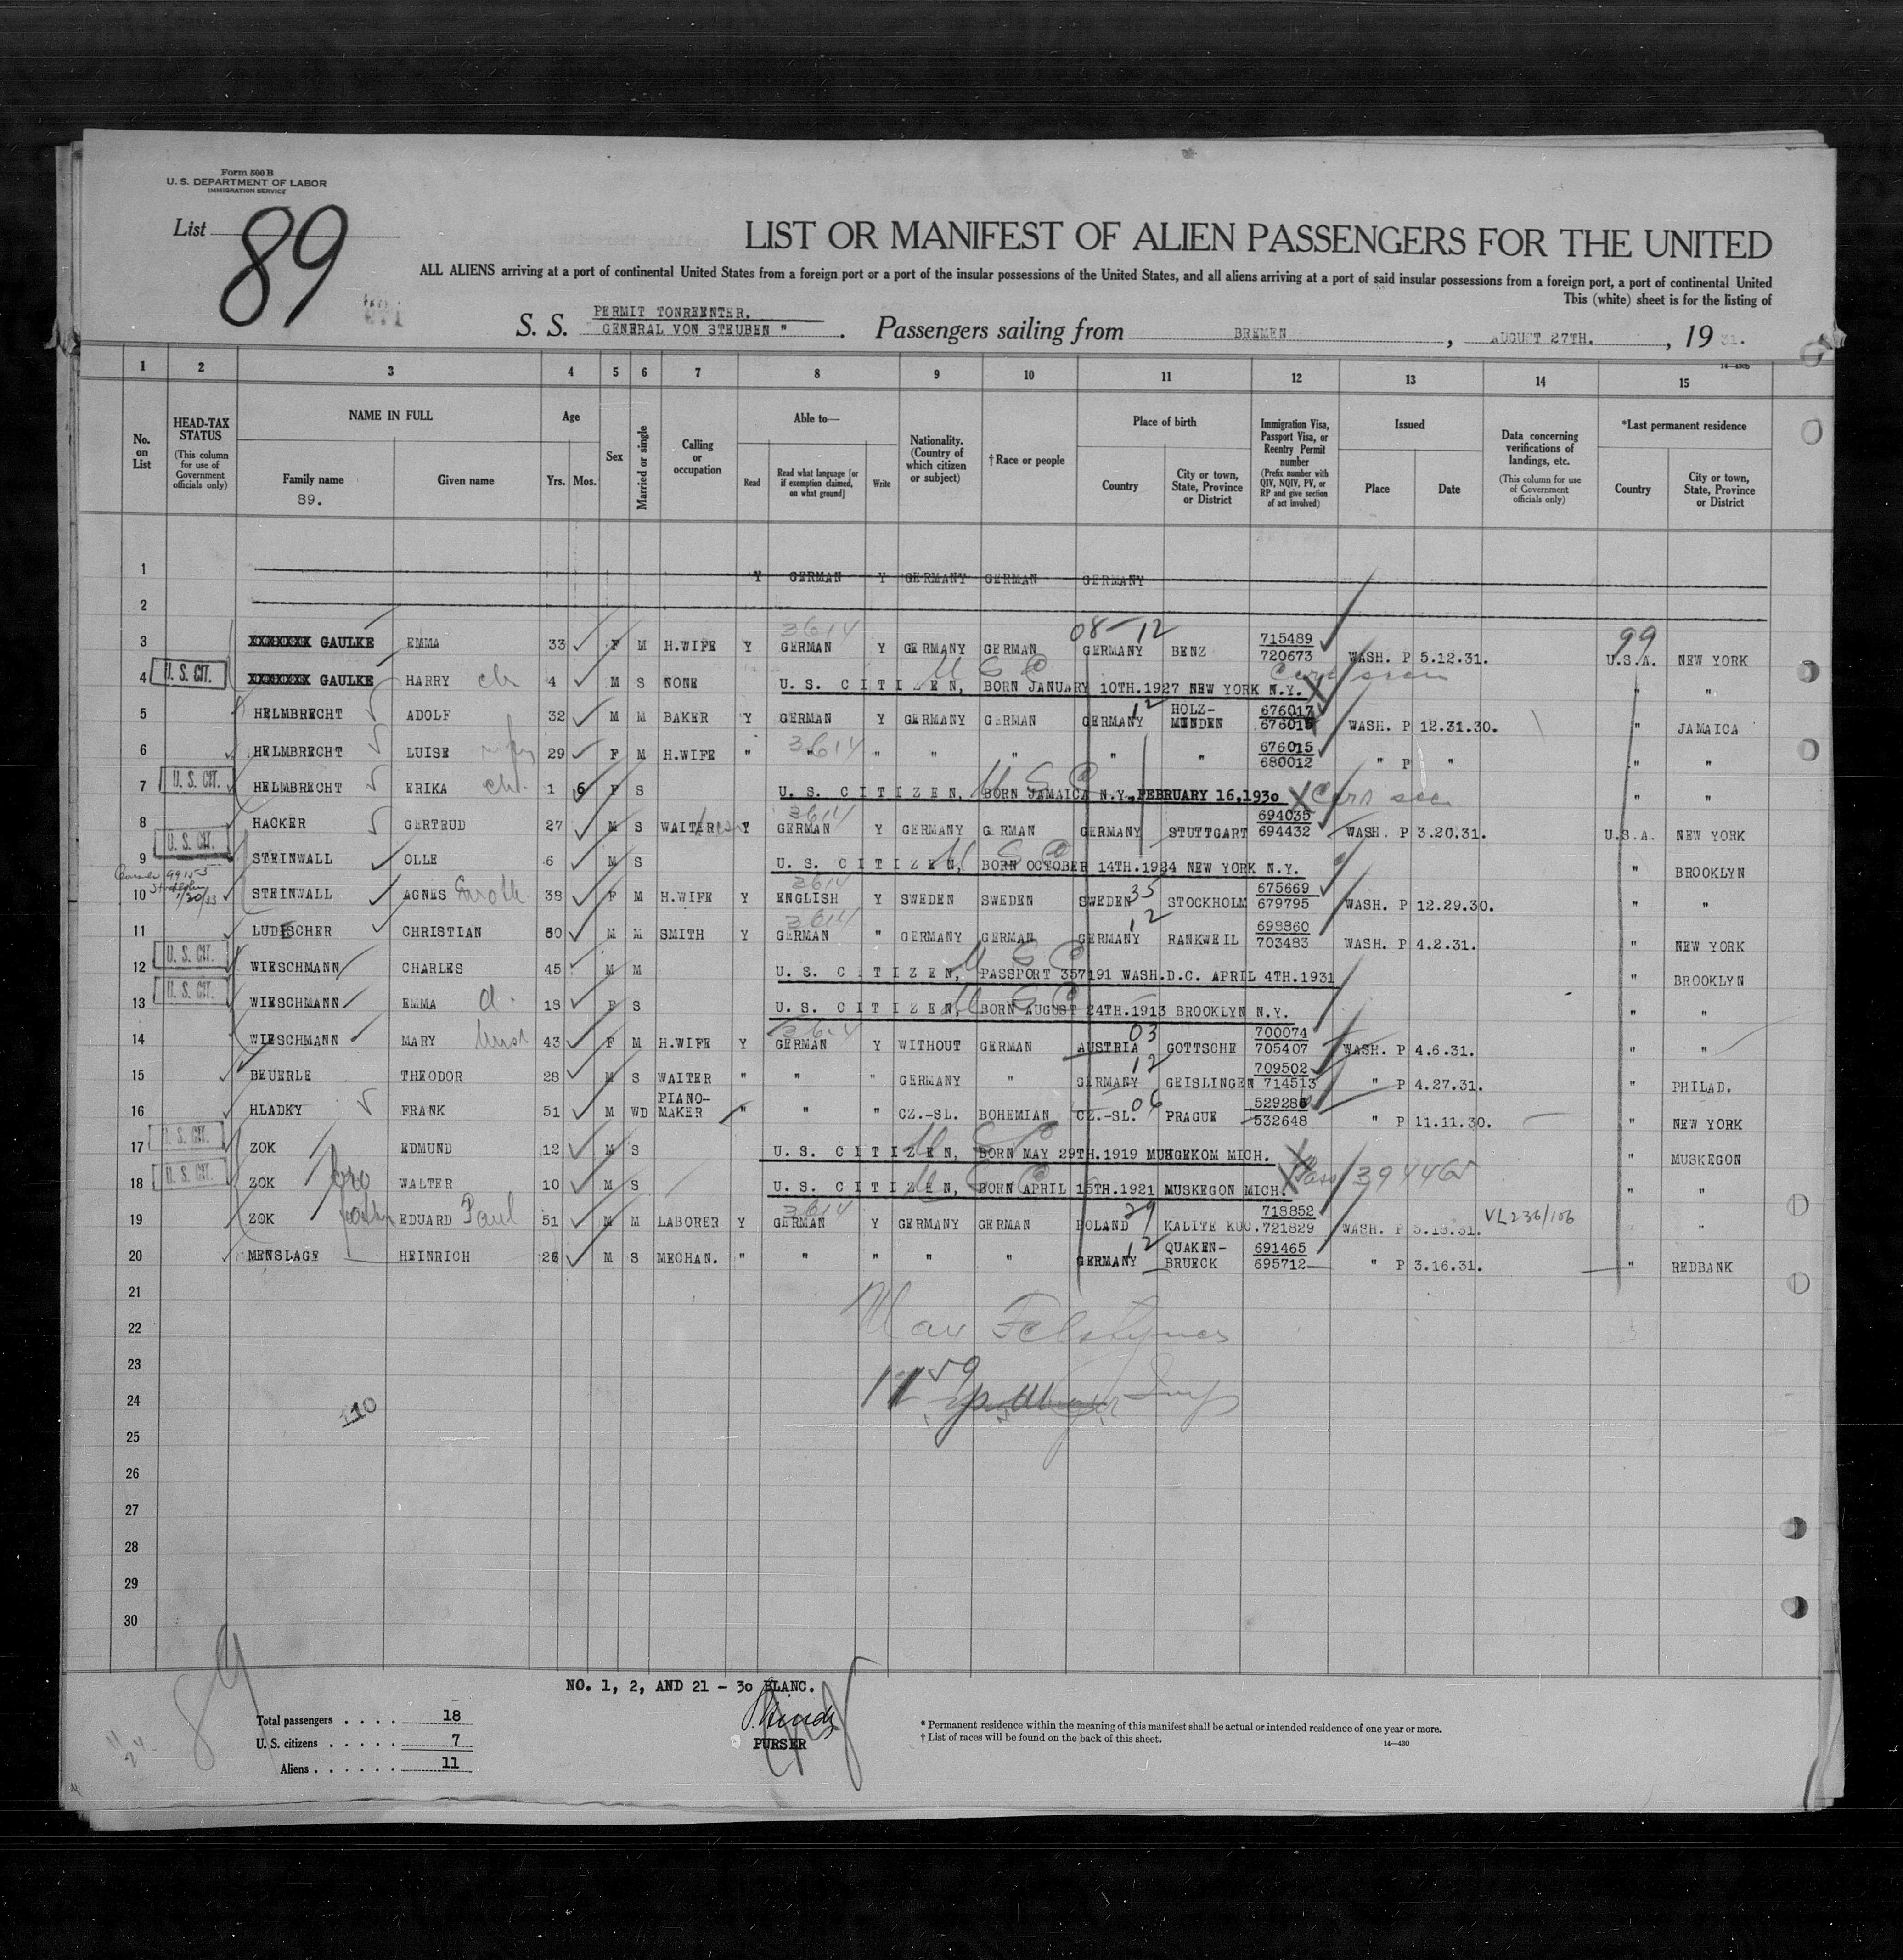 Form 500 B
U. S. DEPARTMENT OF LABOR
IMMIGRATION SERVICE
List 89
LIST OR MANIFEST OF ALIEN PASSENGERS FOR THE UNITED
ALL ALIENS arriving at a port of continental United States from a foreign port or a port of the insular possessions of the United States, and all aliens arriving at a port of said insular possessions from a foreign port, a port of continental United
This (white) sheet is for the listing of
PERMIT TONREENTER.
S. S. "GENERAL VON STEUBEN". Passengers sailing from BREMEN, AUGUST 27TH., 1931.
14—430b
1 2 3 4 5 6 7 8 9 10 11 12 13 14 15
No. on List
HEAD-TAX STATUS (This column for use of Government officials only)
NAME IN FULL
Family name
89.
Given name
Age
Yrs. Mos.
Sex
Married or single
Calling or occupation
Able to—
Read
Read what language [or if exemption claimed, on what ground]
Write
Nationality. (Country of which citizen or subject)
† Race or people
Place of birth
Country
City or town, State, Province or District
Immigration Visa, Passport Visa, or Reentry Permit number (Prefix number with QIV, NQIV, PV, or RP and give section of act involved)
Issued
Place
Date
Data concerning verifications of landings, etc. (This column for use of Government officials only)
*Last permanent residence
Country
City or town, State, Province or District
1 Y GERMAN Y GERMANY GERMAN GERMANY
2
3614 08-12 99
3 XXXXXXX GAULKE EMMA 33 F M H.WIFE Y GERMAN Y GERMANY GERMAN GERMANY BENZ 715489 720673 WASH. P 5.12.31. U.S.A. NEW YORK
U. S. CIT.
4 XXXXXXX GAULKE HARRY ch 4 M S NONE U. S. CITIZEN, BORN JANUARY 10TH.1927 NEW YORK N.Y. X " "
5 HELMBRECHT ADOLF 32 M M BAKER Y GERMAN Y GERMANY GERMAN GERMANY 12 HOLZ-MINDEN 676017 WASH. P 12.31.30. " JAMAICA
6 HELMBRECHT LUISE 29 F M H.WIFE " 3614 " " " " " " 676015 680012 " P " " "
U. S. CIT.
7 HELMBRECHT ERIKA ch. 1 6 F S U. S. CITIZEN, BORN JAMAICA N.Y., FEBRUARY 16,1930 X " "
8 HACKER GERTRUD 27 M S WAITER Y 3614 GERMAN Y GERMANY G RMAN GERMANY STUTTGART 694035 694432 WASH. P 3.20.31. U.S.A. NEW YORK
U. S. CIT.
9 STEINWALL OLLE 6 M S U. S. CITIZEN, BORN OCTOBER 14TH.1924 NEW YORK N.Y. " BROOKLYN
10 STEINWALL AGNES 38 F M H.WIFE Y 3614 ENGLISH Y SWEDEN SWEDEN SWEDEN 35 STOCKHOLM 675669 679795 WASH. P 12.29.30. " "
11 LUDESCHER CHRISTIAN 50 M M SMITH Y 3614 GERMAN " GERMANY GERMAN GERMANY 12 RANKWEIL 698860 703483 WASH. P 4.2.31. " NEW YORK
U. S. CIT.
12 WIESCHMANN CHARLES 45 M M U. S. CITIZEN, PASSPORT 357191 WASH.D.C. APRIL 4TH.1931 " BROOKLYN
U. S. CIT.
13 WIESCHMANN EMMA d. 18 F S U. S. CITIZEN, BORN AUGUST 24TH.1913 BROOKLYN N.Y. " "
14 WIESCHMANN MARY 43 F M H.WIFE Y GERMAN Y WITHOUT GERMAN AUSTRIA 03 GOTTSCHE 700074 705407 WASH. P 4.6.31. " "
15 BEUERLE THEODOR 28 M S WAITER " " " GERMANY " GERMANY 12 GEISLINGEN 709502 714513 " P 4.27.31. " PHILAD.
16 HLADKY FRANK 51 M WD PIANO-MAKER " " " CZ.-SL. BOHEMIAN CZ.-SL. 06 PRAGUE 529286 532648 " P 11.11.30. " NEW YORK
U. S. CIT.
17 ZOK EDMUND 12 M S U. S. CITIZEN, BORN MAY 29TH.1919 MUSGEKOM MICH. X " MUSKEGON
U. S. CIT.
18 ZOK bro WALTER 10 M S U. S. CITIZEN, BORN APRIL 15TH.1921 MUSKEGON MICH. X Pass " "
19 ZOK father EDUARD Paul 51 M M LABORER Y 3614 GERMAN Y GERMANY GERMAN POLAND 29 KALITE KUO. 718852 721829 WASH. P 5.18.31. VL236/106 "
20 MENSLAGE HEINRICH 26 M S MECHAN. " " " " " GERMANY 12 QUAKEN-BRUECK 691465 695712 " P 3.16.31. " REDBANK
21
22 Max
23
24 110
25
26
27
28
29
30
89
NO. 1, 2, AND 21 - 30 BLANC.
Total passengers . . . . 18
U. S. citizens . . . . . 7
Aliens . . . . . . 11
PURSER
* Permanent residence within the meaning of this manifest shall be actual or intended residence of one year or more.
† List of races will be found on the back of this sheet.
14—430